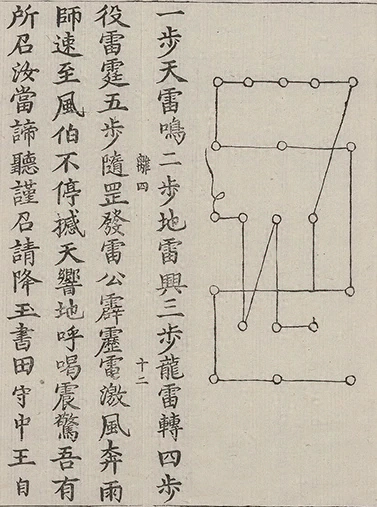 一步天雷鳴二步地雷興三步龍雷轉四步
離四
十二
役雷霆五步隨罡發雷公霹靂電激風奔雨
師速至風伯不停撼天響地呼喝震驚吾有
所召汝當諦聽謹召請降玉書田守中王自